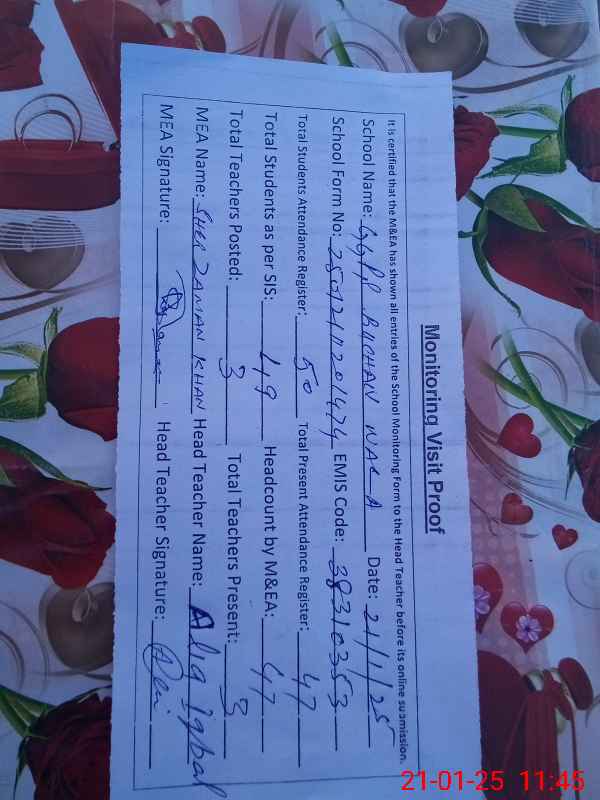 Monitoring Visit Proof
It is certified that the M&EA has shown all entries of the School Monitoring Form to the Head Teacher before its online submission.
School Name: GGPS BUCHAN WALA Date: 21/1/25
School Form No: EMIS Code: 38310353
Total Students Attendance Register: 50 Total Present Attendance Register: 47
Total Students as per SIS: 49 Headcount by M&EA: 47
Total Teachers Posted: 3 Total Teachers Present: 3
MEA Name: SHER ZAMAN KHAN Head Teacher Name: Alia Iqbal
MEA Signature: Head Teacher Signature:
21-01-25 11:45